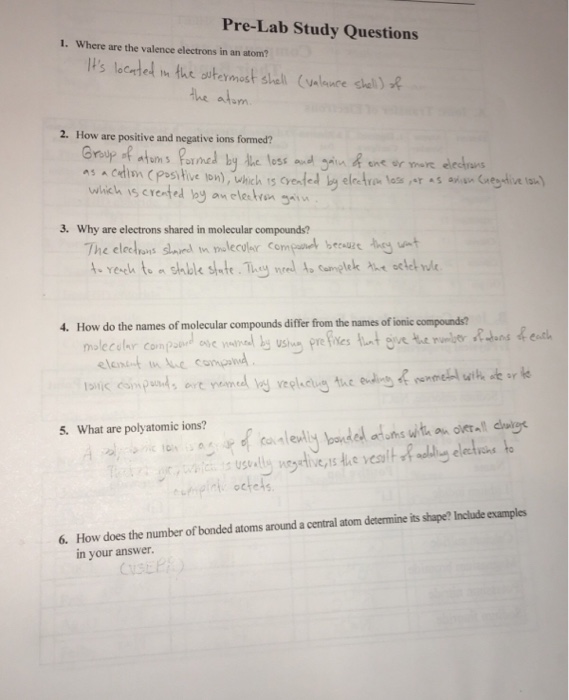 Pre-Lab Study Questions
1. Where are the valence electrons in an atom?
It's located in the outermost shell (valance shell) of
the atom.
2. How are positive and negative ions formed?
Group of atoms formed by the loss and gain of one or more electrons
as a cation (positive ion), which is created by electron loss, or as anion (negative ion)
which is created by an electron gain.
3. Why are electrons shared in molecular compounds?
The electrons shared in molecular compound because they want
to reach to a stable state. They need to complete the octet rule
4. How do the names of molecular compounds differ from the names of ionic compounds?
molecular compound are named by using prefixes that give the number of atoms of each
element in the compound.
Ionic compounds are named by replacing the ending of nonmetal with or
5. What are polyatomic ions?
A ion is a of covalently bonded atoms with an overall charge
is usually negative, is the result of adding electrons to
octets.
6. How does the number of bonded atoms around a central atom determine its shape? Include examples
in your answer.